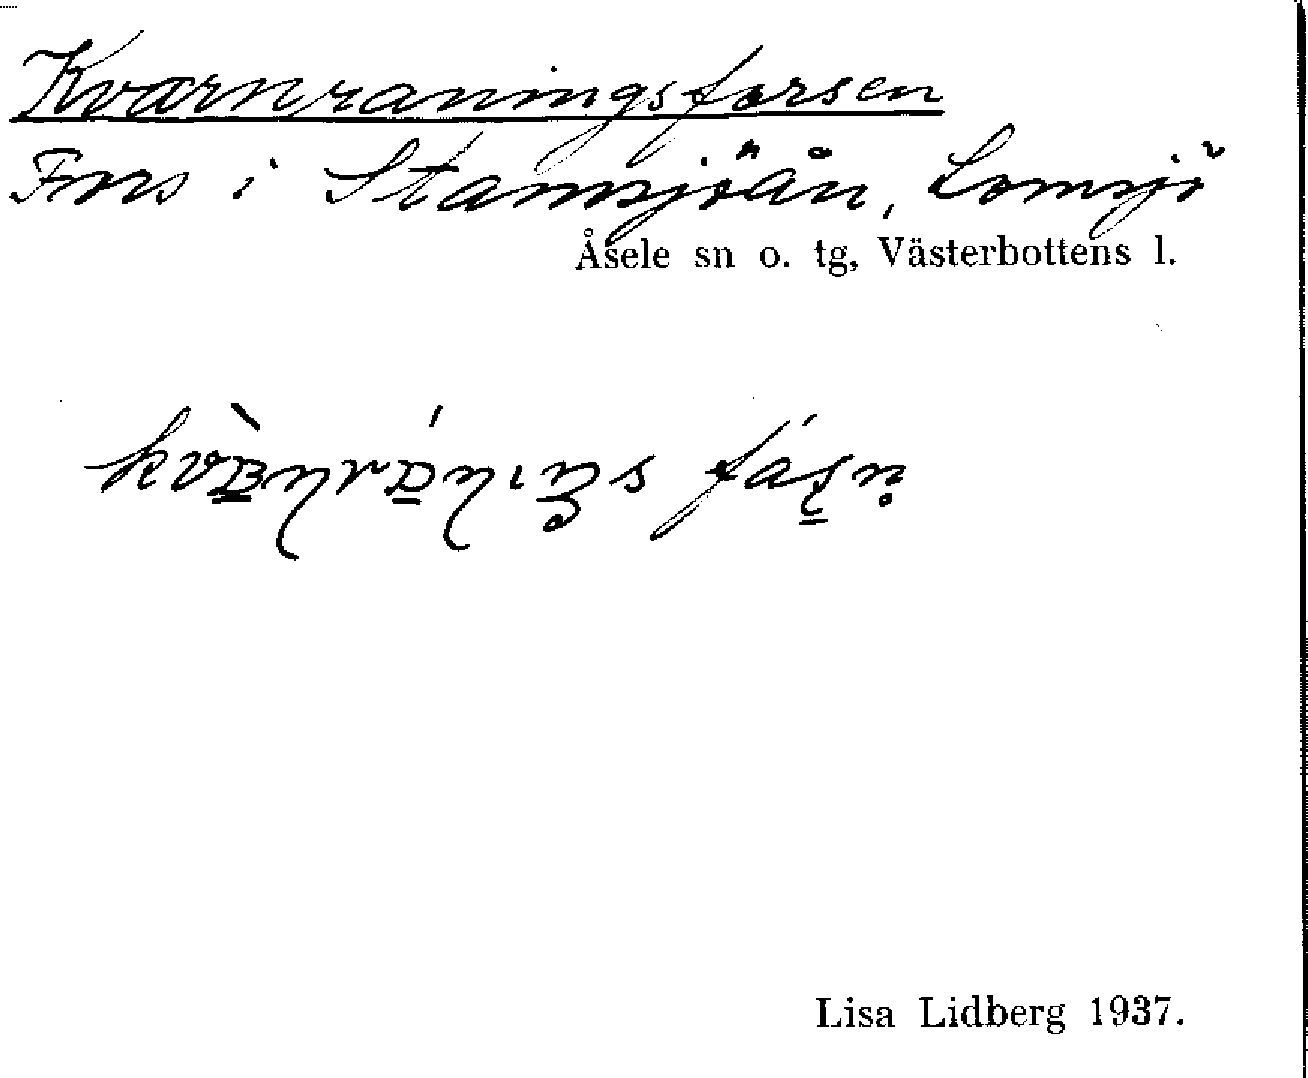 Kvarnraningsforsen
Fors i Stamsjöån, Lomsjö
Åsele sn o. tg, Västerbottens l.
Lisa Lidberg 1937.